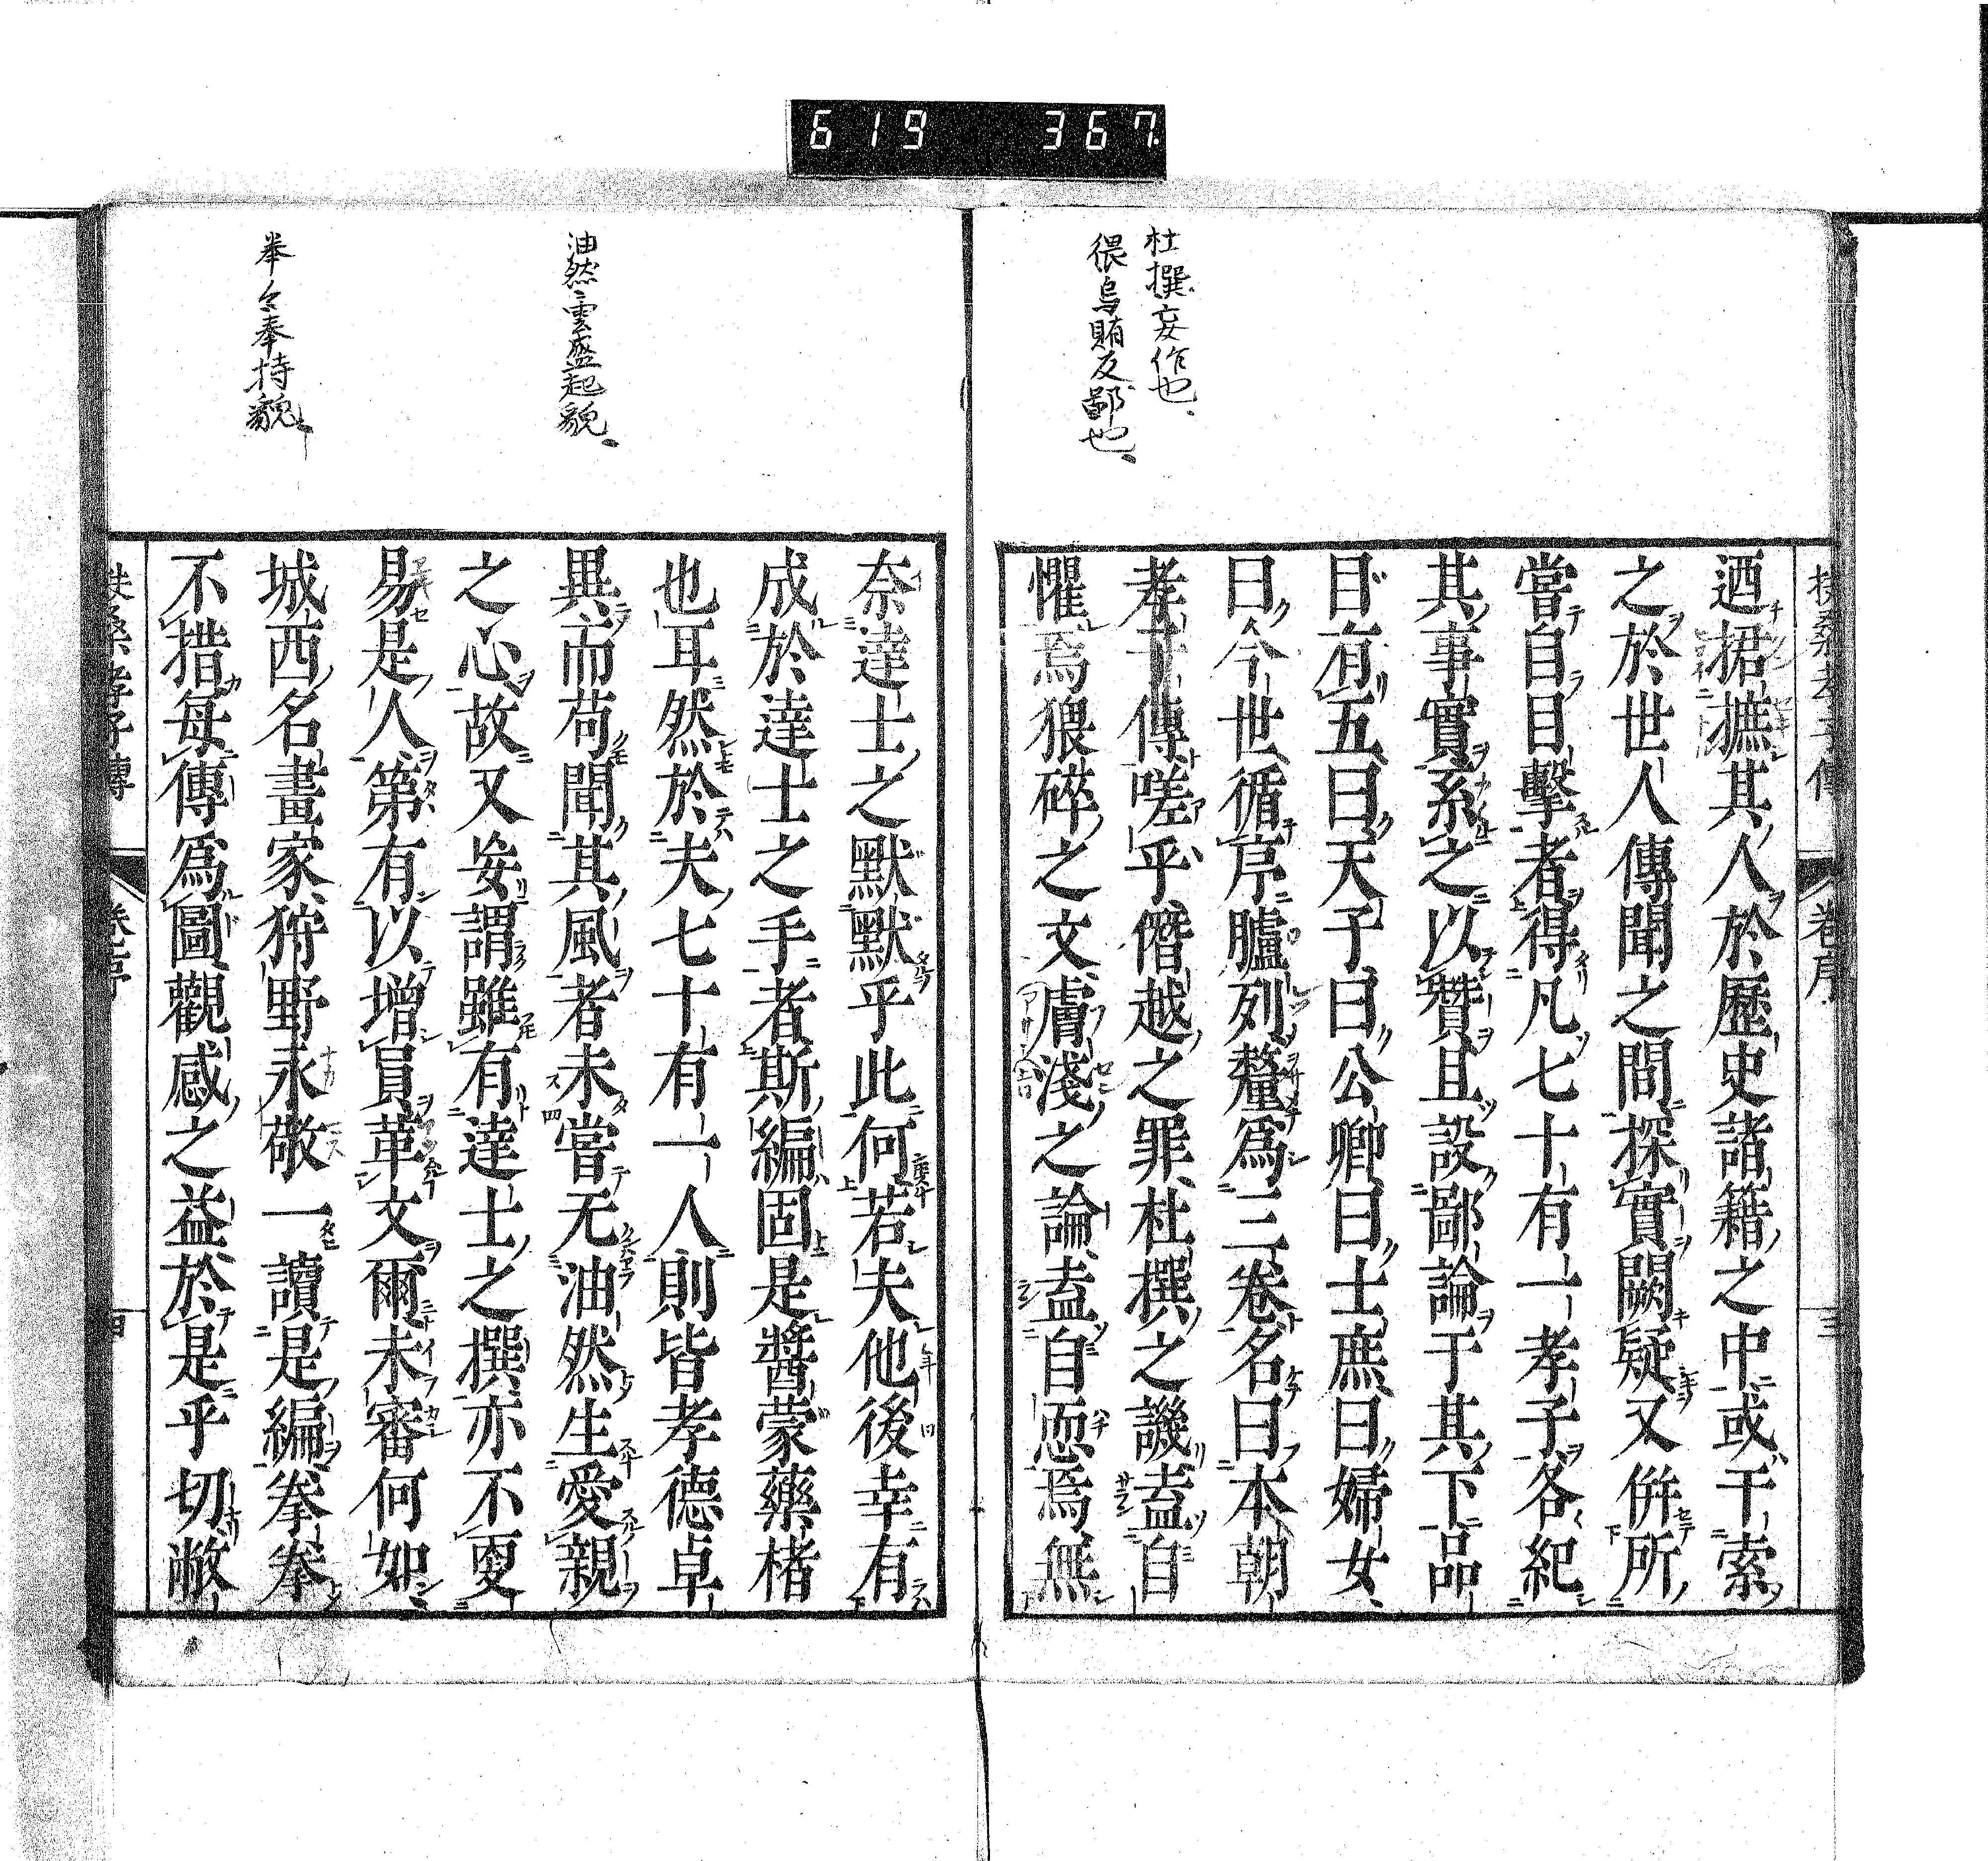 619 367
杜撰妄作也
猥烏賄反鄙也
扶桑孝子傳 卷序 三
迺捃摭其人於歷史諸籍之中或干索
之於世人傳聞之間探實闕疑又併所
嘗自目擊者得凡七十有一孝子各紀
其事實系之以贊且設鄙論于其下品
目有五曰天子曰公卿曰士庶曰婦女
曰今世循序臚列釐爲三卷名曰本朝
孝子傳嗟乎僭越之罪杜撰之譏盍自
懼焉猥碎之文膚淺之論盍自恧焉無
油然雲盛起貌
拳々奉持貌
奈達士之默默乎此何若夫他後幸有
成於達士之手者斯編固是醬蒙藥楮
也耳然於夫七十有一人則皆孝德卓
異而苟聞其風者未嘗无油然生愛親
之心故又妄謂雖有達士之撰亦不更
易是人第有以增員革文爾未審何如
城西名畫家狩野永敬一讀是編拳拳
不措每傳爲圖觀感之益於是乎切敝
扶桑孝子傳 卷序 四